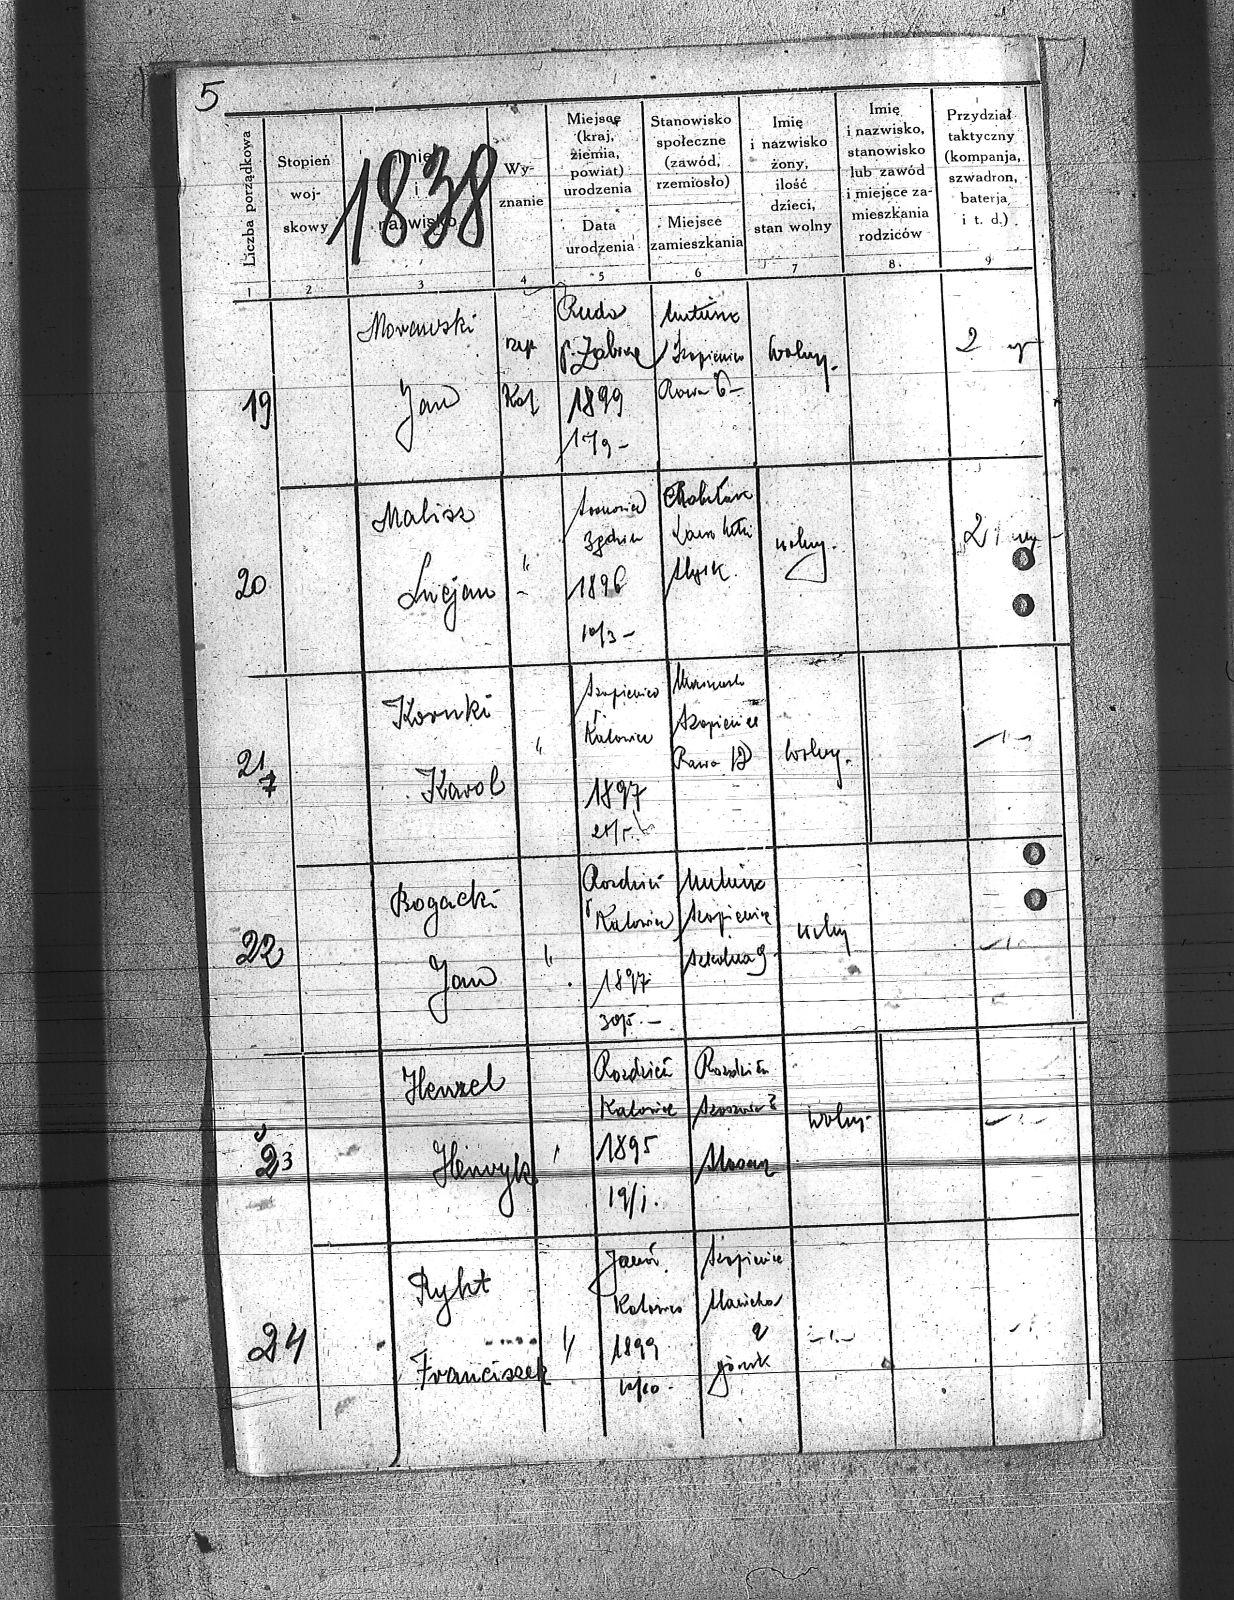 5
1838
Liczba porządkowa
Stopień
woj-
skowy
Imię
i
nazwisko
Wy-
znanie
Miejsce
(kraj,
ziemia,
powiat)
urodzenia
Data
urodzenia
Stanowisko
społeczne
(zawód,
rzemiosło)
Miejsce
zamieszkania
Imię
i nazwisko
żony,
ilość
dzieci,
stan wolny
Imię
i nazwisko,
stanowisko
lub zawód
i miejsce za-
mieszkania
rodziców
Przydział
taktyczny
(kompanja,
szwadron,
baterja
i t. d.)
1 2 3 4 5 6 7 8 9
19
Morawski
Jan
rzym
Kat
Ruda
p. Zabrze
1899
Szopienice
Rawa 6 -
wolny.
2
20
Malisz
Lucjan
"
1896
10/3 -
wolny.
2
21
7
Kornki
Karol
"
Szopienice
Katowice
1897
Szopienice
Rawa 18
wolny.
22
Bogacki
Jan
"
Rozdzień
Katowice
1897
30/5. -
Szopienice
Szkolna 9
wolny
23
Henzel
Henryk
"
Rozdzień
Katowice
1895
19/1.
Rozdzień
wolny.
24
Rykt
Franciszek
"
Katowice
1899
10/10 -
Szopienice
2
górnik